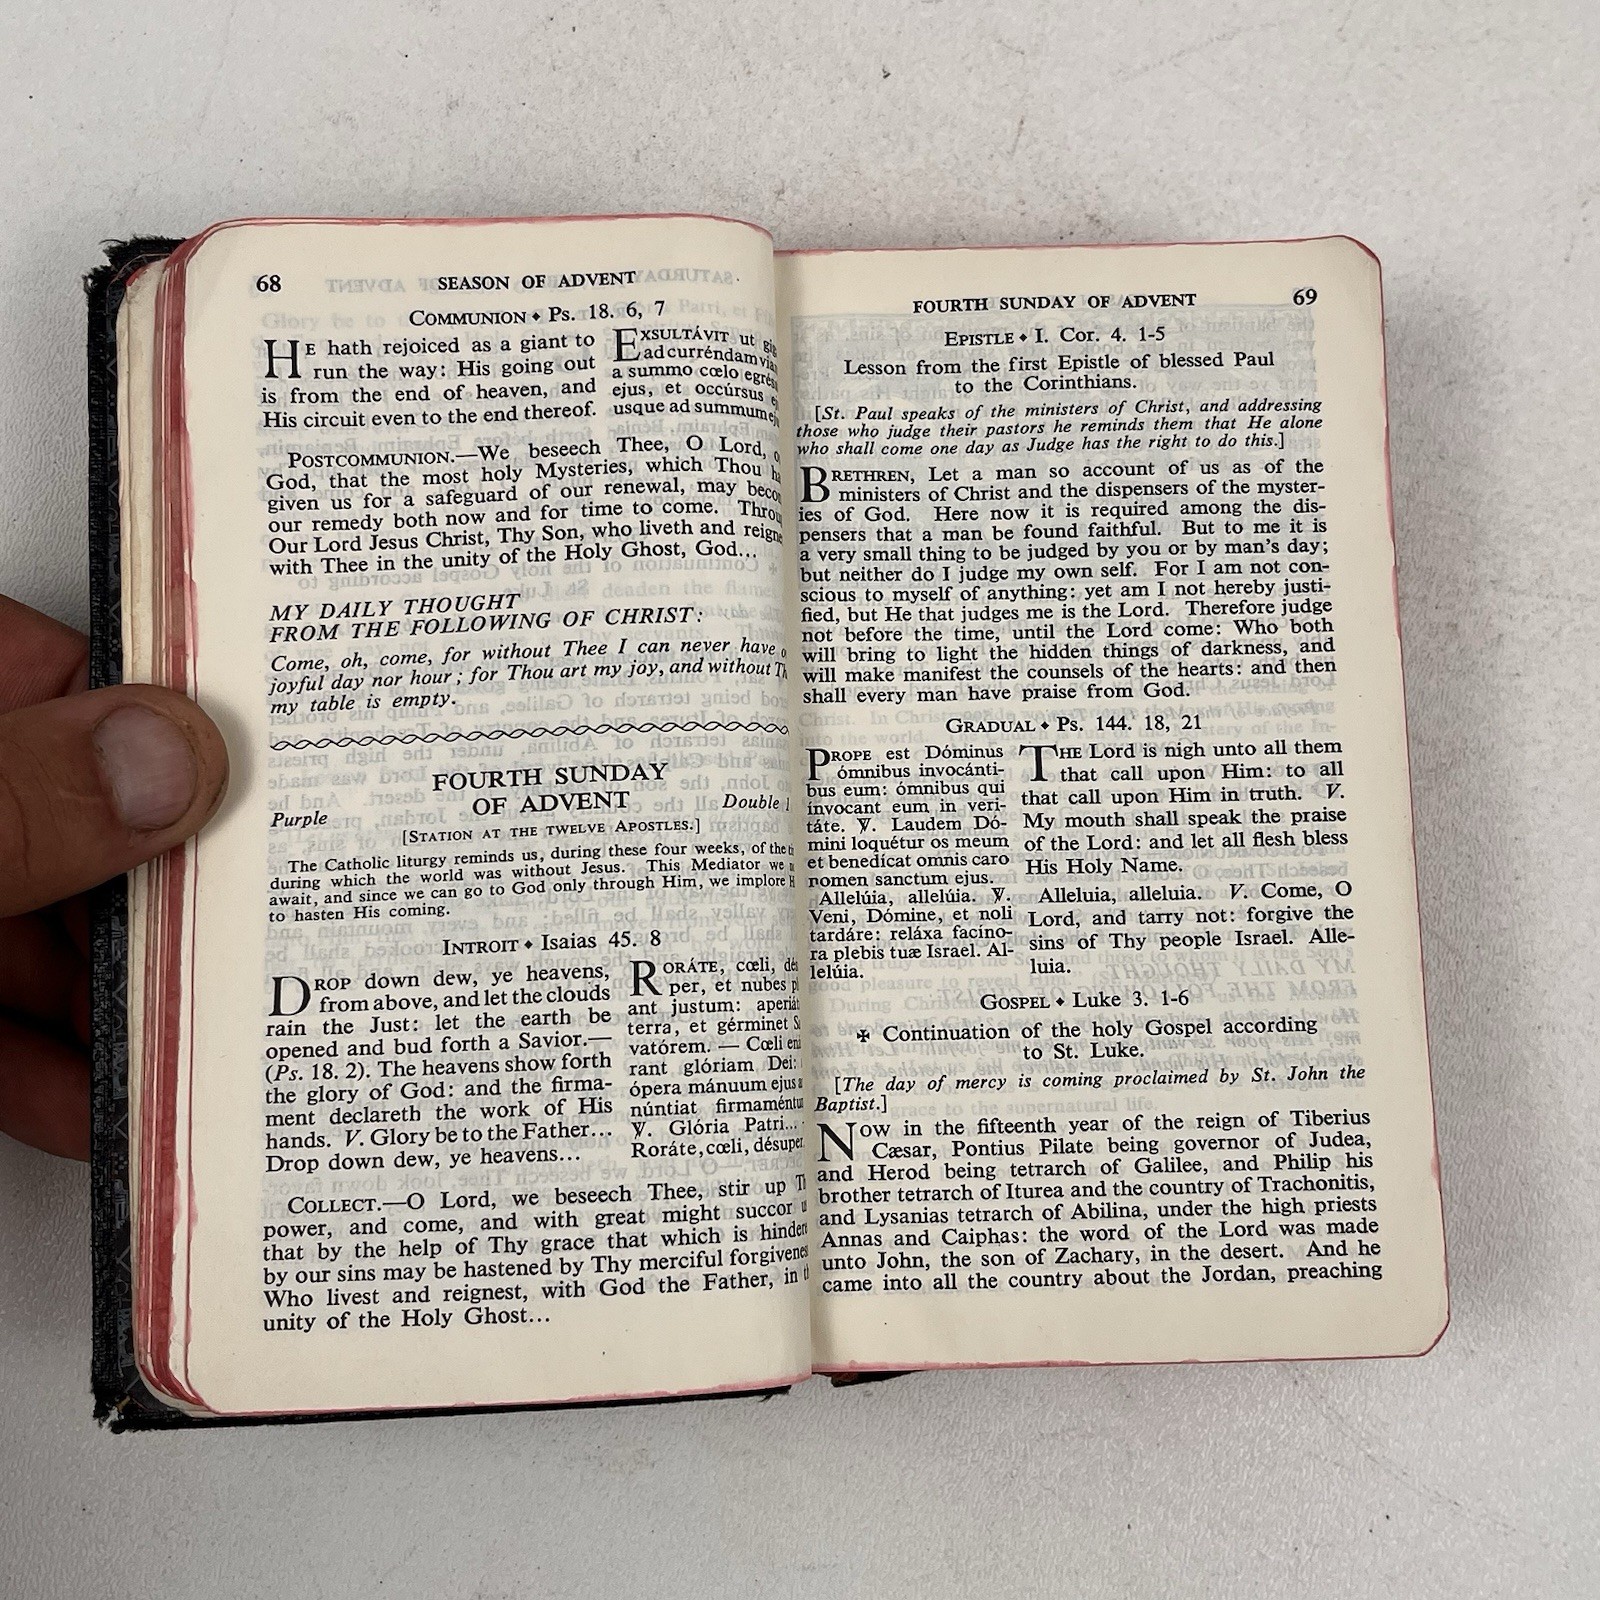 68 SEASON OF ADVENT
COMMUNION ◆ Ps. 18. 6, 7
HE hath rejoiced as a giant to
run the way: His going out
is from the end of heaven, and
His circuit even to the end thereof.
EXSULTÁVIT ut
ad curréndam
a summo cœlo
ejus, et occúrsus
usque ad summum
POSTCOMMUNION.—We beseech Thee, O Lord,
God, that the most holy Mysteries, which Thou
given us for a safeguard of our renewal, may
our remedy both now and for time to come.
Our Lord Jesus Christ, Thy Son, who liveth and
with Thee in the unity of the Holy Ghost, God...
MY DAILY THOUGHT
FROM THE FOLLOWING OF CHRIST:
Come, oh, come, for without Thee I can never have
joyful day nor hour; for Thou art my joy, and without
my table is empty.
FOURTH SUNDAY
OF ADVENT
Purple Double
[STATION AT THE TWELVE APOSTLES.]
The Catholic liturgy reminds us, during these four weeks, of the
during which the world was without Jesus. This Mediator we
await, and since we can go to God only through Him, we implore
to hasten His coming.
INTROIT ◆ Isaias 45. 8
DROP down dew, ye heavens,
from above, and let the clouds
rain the Just: let the earth be
opened and bud forth a Savior.—
(Ps. 18. 2). The heavens show forth
the glory of God: and the firma-
ment declareth the work of His
hands. V. Glory be to the Father...
Drop down dew, ye heavens...
RORÁTE, cœli,
per, et nubes
ant justum:
terra, et gérminet
vatórem. — Cœli
rant glóriam Dei:
ópera mánuum ejus
núntiat
℣. Glória Patri...
Roráte, cœli, désuper
COLLECT.—O Lord, we beseech Thee, stir up
power, and come, and with great might succor
that by the help of Thy grace that which is
by our sins may be hastened by Thy merciful
Who livest and reignest, with God the Father, in
unity of the Holy Ghost...
FOURTH SUNDAY OF ADVENT 69
EPISTLE ◆ I. Cor. 4. 1-5
Lesson from the first Epistle of blessed Paul
to the Corinthians.
[St. Paul speaks of the ministers of Christ, and addressing
those who judge their pastors he reminds them that He alone
who shall come one day as Judge has the right to do this.]
BRETHREN, Let a man so account of us as of the
ministers of Christ and the dispensers of the myster-
ies of God. Here now it is required among the dis-
pensers that a man be found faithful. But to me it is
a very small thing to be judged by you or by man's day;
but neither do I judge my own self. For I am not con-
scious to myself of anything: yet am I not hereby justi-
fied, but He that judges me is the Lord. Therefore judge
not before the time, until the Lord come: Who both
will bring to light the hidden things of darkness, and
will make manifest the counsels of the hearts: and then
shall every man have praise from God.
GRADUAL ◆ Ps. 144. 18, 21
PROPE est Dóminus
ómnibus invocánti-
bus eum: ómnibus qui
ínvocant eum in veri-
táte. ℣. Laudem Dó-
mini loquétur os meum
et benedícat omnis caro
nomen sanctum ejus.
Allelúia, allelúia. ℣.
Veni, Dómine, et noli
tardáre: reláxa facíno-
ra plebis tuæ Israel. Al-
lelúia.
THE Lord is nigh unto all them
that call upon Him: to all
that call upon Him in truth. V.
My mouth shall speak the praise
of the Lord: and let all flesh bless
His Holy Name.
Alleluia, alleluia. V. Come, O
Lord, and tarry not: forgive the
sins of Thy people Israel. Alle-
luia.
GOSPEL ◆ Luke 3. 1-6
✠ Continuation of the holy Gospel according
to St. Luke.
[The day of mercy is coming proclaimed by St. John the
Baptist.]
NOW in the fifteenth year of the reign of Tiberius
Cæsar, Pontius Pilate being governor of Judea,
and Herod being tetrarch of Galilee, and Philip his
brother tetrarch of Iturea and the country of Trachonitis,
and Lysanias tetrarch of Abilina, under the high priests
Annas and Caiphas: the word of the Lord was made
unto John, the son of Zachary, in the desert. And he
came into all the country about the Jordan, preaching